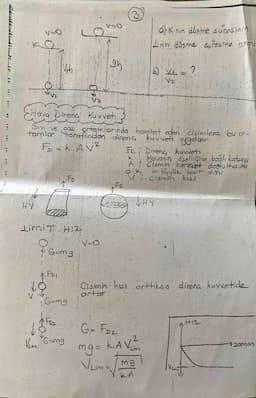 ③
V=0
V=0
a) K nın düşme süresinin
K
L
L nin düşme süresine oranı
4h
9h
b) V1/V2 = ?
V1
V2
Hava Direnç Kuvveti
Sıvı ve gaz ortamlarında hareket eden cisimlere bu or-
tamlar tarafından direnç kuvveti uygulanır
FD = k A V²
FD: Direnç kuvveti
k: Havanın özelliğine bağlı katsayı
A: Cismin hareket doğrultusuna
dik en büyük kesit alanı
V: Cismin hızı
FD
FD
HY
HY
LimiT HIZ
V=0
G=mg
FD1
V
G=mg
Cismin hızı arttıkça direnç kuvvetide
artar
FD2
Vlim
G=mg
G = FD2
mg = kAV²lim
Vlim = √mg/kA
HIZ
zaman
Vlim